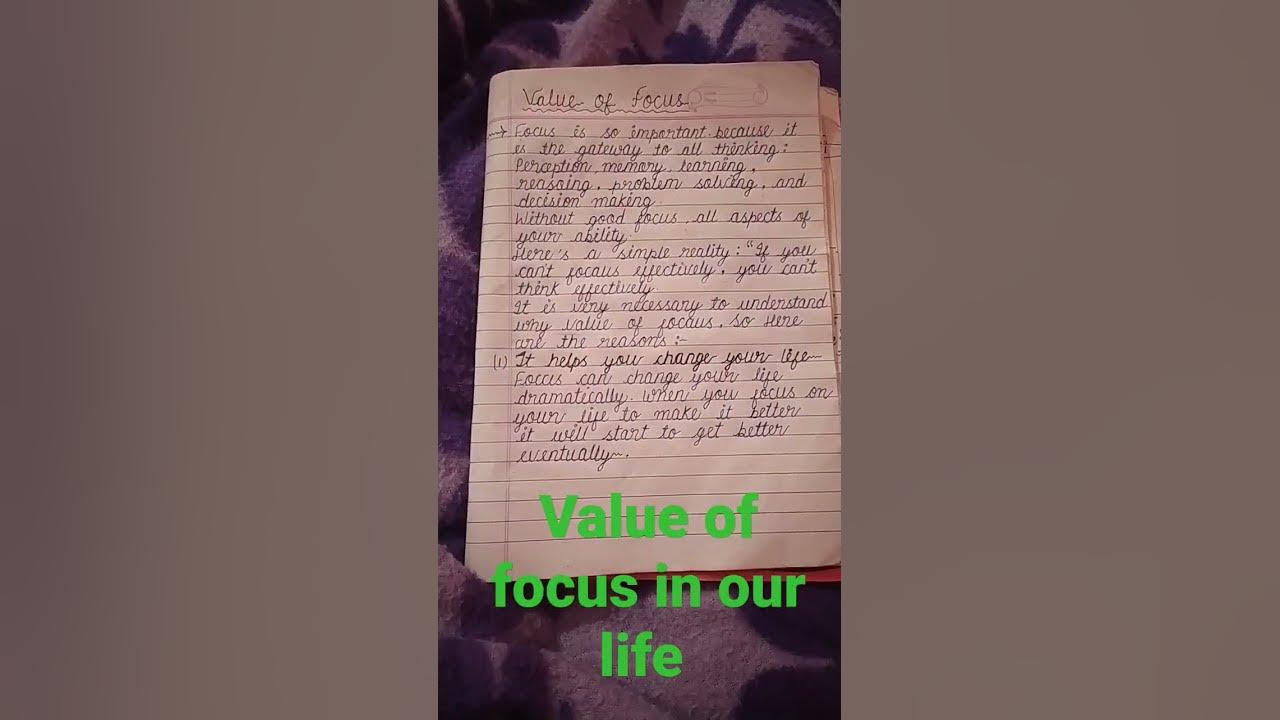 Value of Focus
Focus is so important because it
is the gateway to all thinking:
Perception, memory, learning,
reasoing, problem solving, and
decision making.
Without good focus, all aspects of
your ability.
Here's a simple reality: "If you
can't focaus effectively", you can't
think effectively.
It is very necessary to understand
why value of focaus. So Here
are the reasons:-
(1) It helps you change your life
Foccus can change your life
dramatically. When you focus on
your life to make it better
it will start to get better
eventually.
Value of
focus in our
life